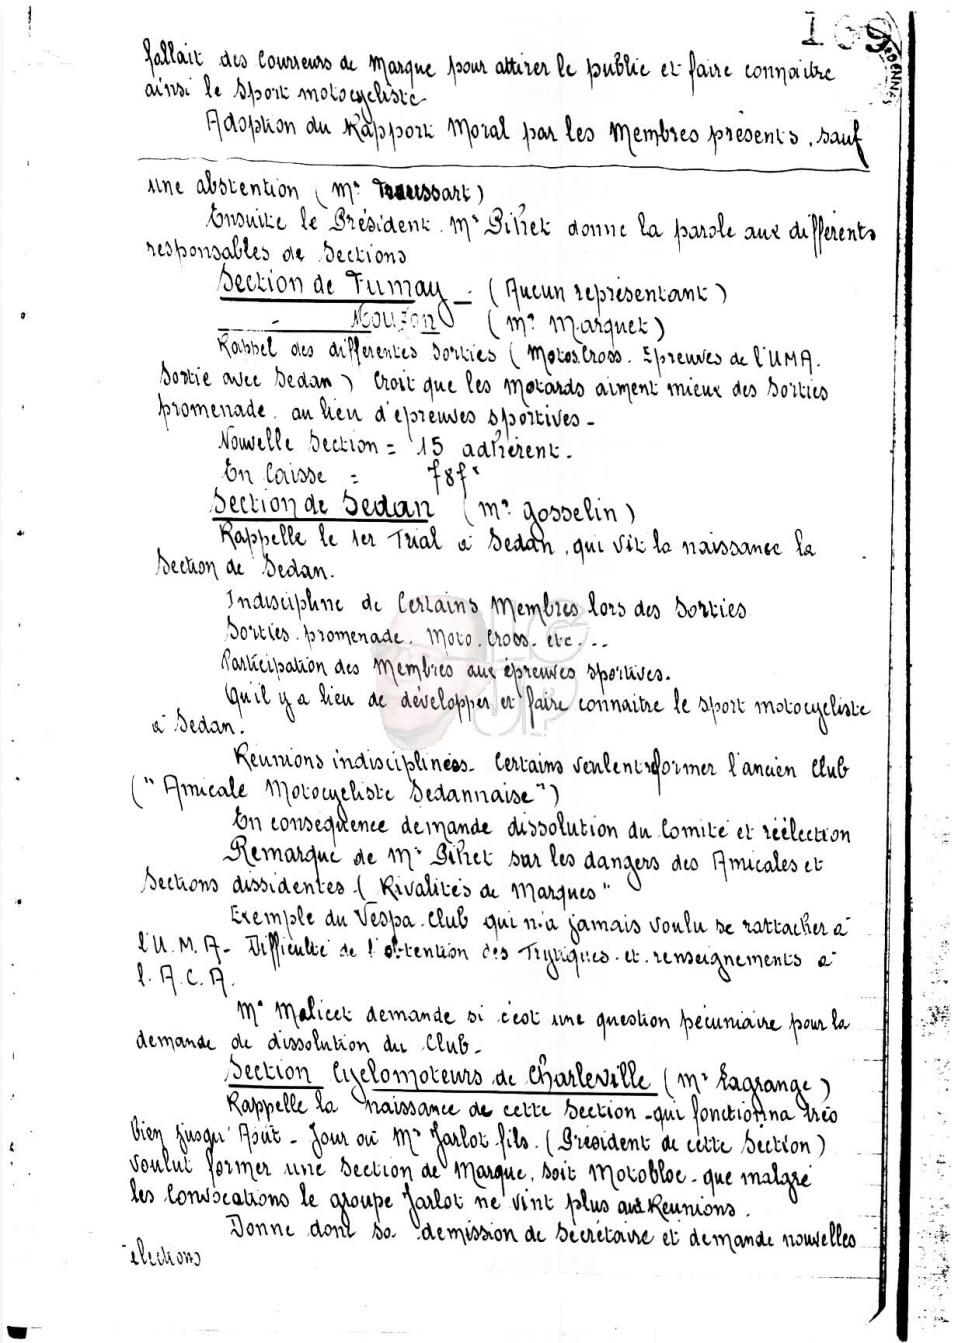 169
fallait des Coureurs de Marque pour attirer le public et faire connaitre
ainsi le Sport motocycliste
Adoption du Rapport Moral par les Membres présents, sauf
une abstention ( Mr )
Ensuite le Président Mr Pihet donne la parole aux différents
responsables de Sections
Section de Fumay _ ( Aucun représentant )
- Mouzon ( Mr Marquet )
Rappel des différentes Sorties ( Motos Cross. Epreuves de l'UMA.
Sortie avec Sedan ) Croit que les Motards aiment mieux des Sorties
promenade au lieu d'épreuves sportives -
Nouvelle Section = 15 adhérent.
En Caisse = 78f
Section de Sedan ( Mr Gosselin )
Rappelle le 1er Trial à Sedan, qui vit la naissance la
Section de Sedan.
Indiscipline de Certains Membres lors des Sorties
Sorties promenade. Moto. Cross. etc...
Participation des Membres aux épreuves sportives.
Qu'il y a lieu de développer et faire connaitre le sport motocycliste
à Sedan.
Réunions indisciplinées. Certains veulent reformer l'ancien Club
("Amicale Motocycliste Sedannaise")
En conséquence demande dissolution du Comité et réélection
Remarque de Mr Pihet sur les dangers des Amicales et
Sections dissidentes ( Rivalités de Marques"
Exemple du Vespa. Club qui n'a jamais voulu se rattacher à
l'U.M.A- Difficulté de l'obtention des Tryptiques et renseignements à
l.A.C.A.
Mr Malicet demande si c'est une question pécuniaire pour la
demande de dissolution du Club.
Section Cyclomoteurs de Charleville ( Mr Lagrange )
Rappelle la naissance de cette Section - qui fonctionna très
bien jusqu' Août - Jour où Mr Jarlot fils. ( Président de cette Section )
voulut former une Section de Marque, soit Motobloc - que malgré
les Convocations le groupe Jarlot ne vint plus aux Réunions.
Donne dont sa démission de Secrétaire et demande nouvelles
élections